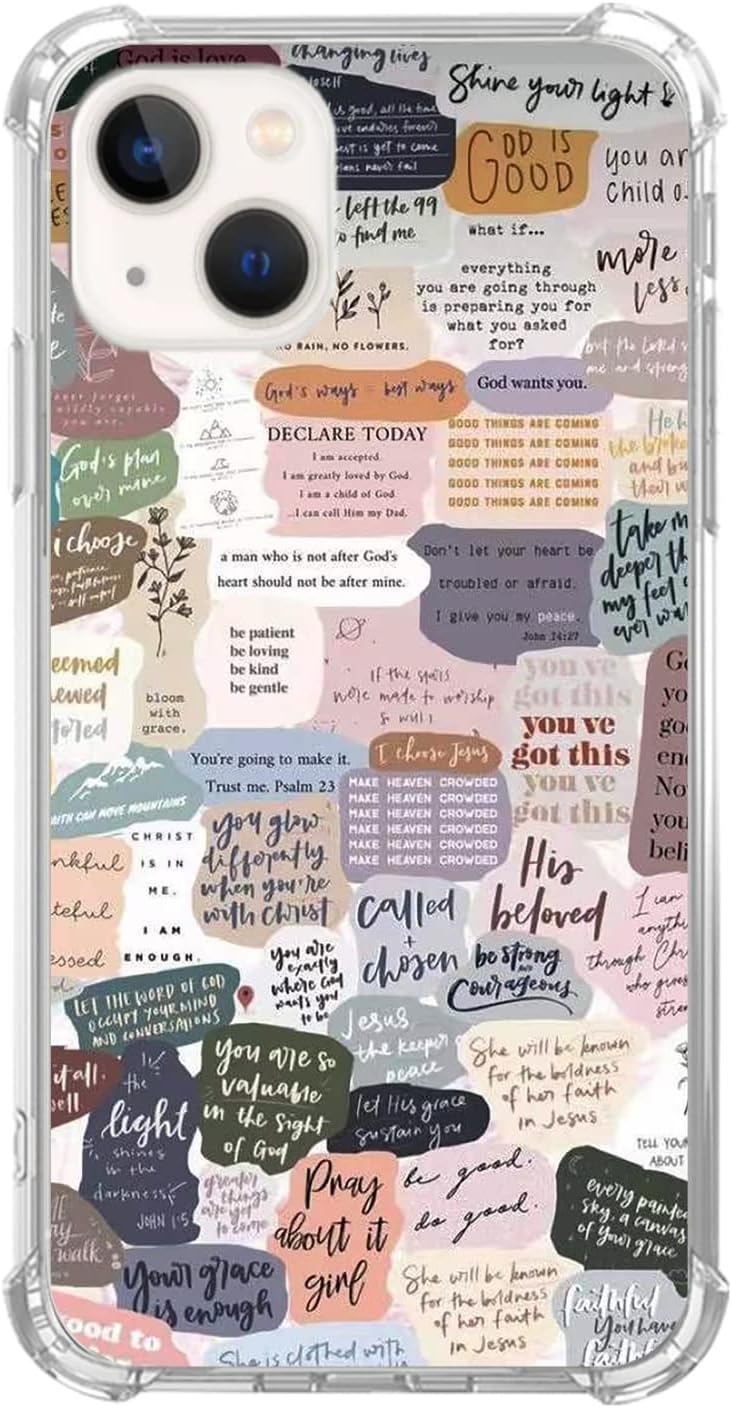 God is love
changing lives
Shine your light
is good, all the time
ve endures forever
est is yet to come
plans never fail
GOD IS
GOOD
you ar
Child o
left the 99
to find me
what if...
everything
you are going through
is preparing you for
what you asked
for?
more
less
NO RAIN, NO FLOWERS.
but the Lord
me and streng
never forget
wildly capable
you are.
God's ways = best ways
God wants you.
DECLARE TODAY
I am accepted.
I am greatly loved by God.
I am a child of God
..I can call Him my Dad.
GOOD THINGS ARE COMING
GOOD THINGS ARE COMING
GOOD THINGS ARE COMING
GOOD THINGS ARE COMING
GOOD THINGS ARE COMING
He h
the broke
and bu
their w
God's plan
over mine
i choose
a man who is not after God's
heart should not be after mine.
Don't let your heart be
troubled or afraid.
I give you my peace.
John 14:27
take m
deeper th
my feet c
ever wa
be patient
be loving
be kind
be gentle
If the stars
were made to worship
so will I
eemed
ewed
tored
bloom
with
grace.
you've
got this
you've
got this
you've
got this
Go
yo
go
en
No
you
beli
You're going to make it.
Trust me. Psalm 23
I choose Jesus
MAKE HEAVEN CROWDED
MAKE HEAVEN CROWDED
MAKE HEAVEN CROWDED
MAKE HEAVEN CROWDED
MAKE HEAVEN CROWDED
MAKE HEAVEN CROWDED
AITH CAN MOVE MOUNTAINS
CHRIST
IS IN
ME.
I AM
ENOUGH.
nkful
teful
essed
you glow
differently
when you're
with Christ
called
+
chosen
His
beloved
I can
anythi
through Chr
who gives
stren
you are
exactly
where God
wants you
to be
be strong
and
Courageous
LET THE WORD OF GOD
OCCUPY YOUR MIND
AND CONVERSATIONS
Jesus
the keeper of
peace
She will be known
for the boldness
of her faith
in Jesus
it all.
ell
the
light
shines
in the
darkness
JOHN 1:5
you are so
valuable
in the sight
of God
let His grace
sustain you
TELL YOUR
ABOUT
greater
things
are yet
to come
Pray
about it
girl
be good.
do good.
every painted
sky, a canvas
of your grace
walk
Your grace
is enough
She will be known
for the boldness
of her faith
in Jesus
faithful
You have
faithful
ood to
She is clothed with